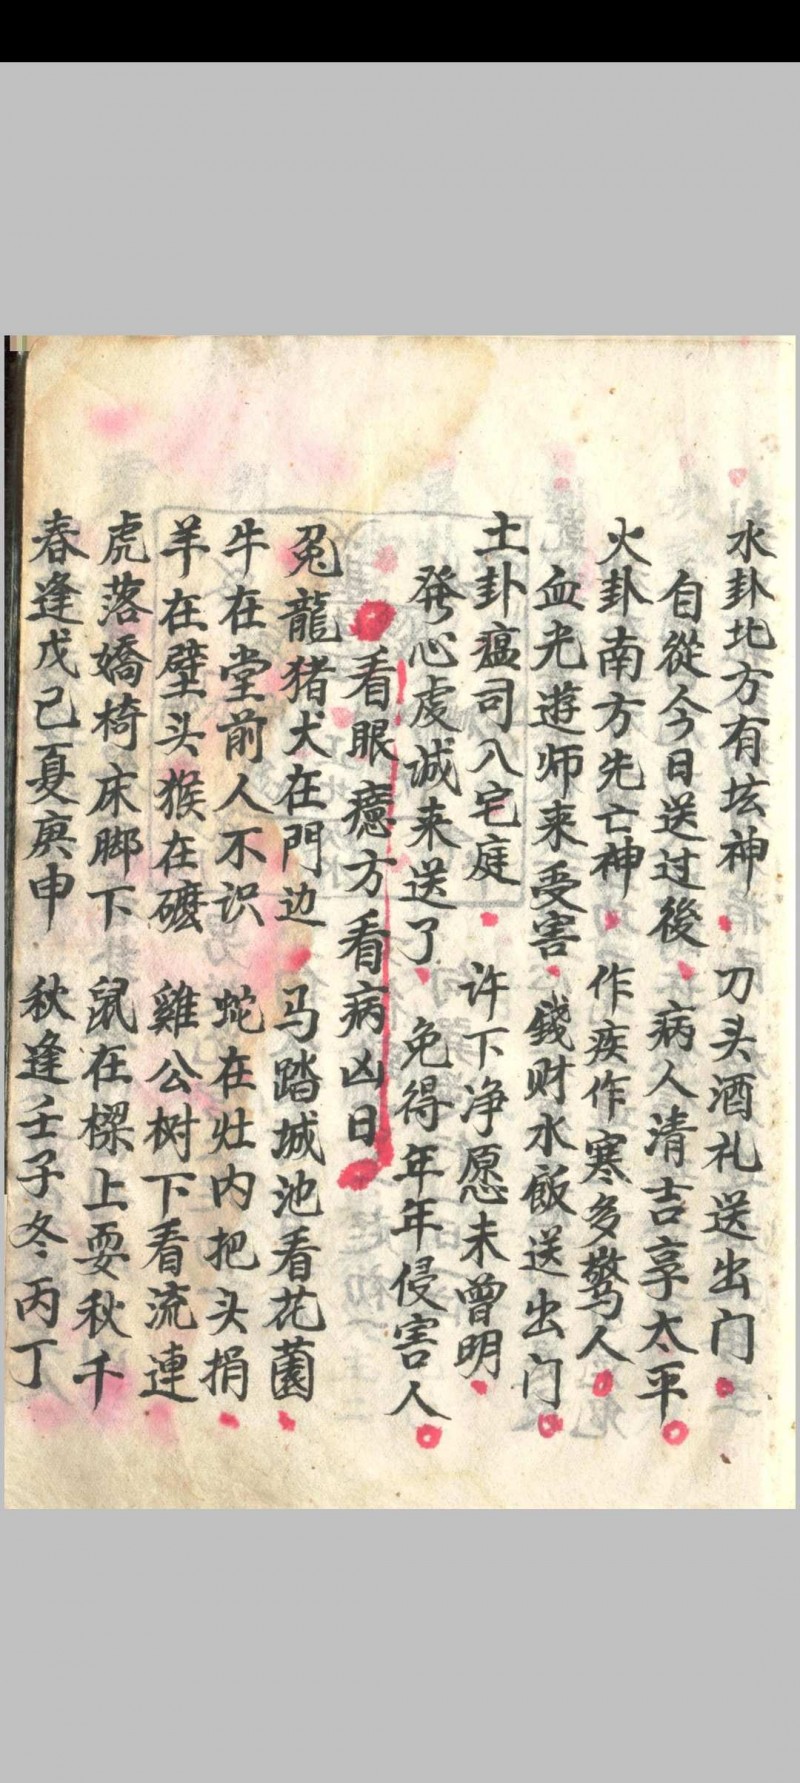 水卦北方有坛神 刀头酒礼送出门
自從今日送过後 病人清吉享太平
火卦南方先亡神 作疾作寒多驚人
血光遊师来受害 錢财水飯送出门
土卦瘟司入宅庭 许下净愿未曾明
發心虔诚来送了 免得年年侵害人
看眼癔方看病凶日
兎龍猪犬在門边 马踏城池看花薗
牛在堂前人不识 蛇在灶内把头捐
羊在壁头猴在磉 雞公树下看流連
虎落嬌椅床脚下 鼠在樑上耍秋千
春逢戊己夏庚申 秋逢壬子冬丙丁